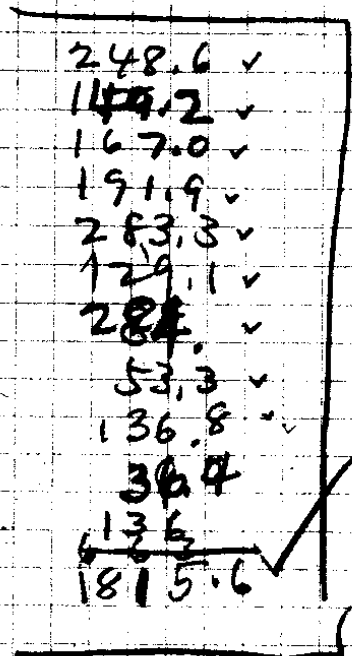 248.6 ✓
149.2 ✓
167.0 ✓
191.9 ✓
283.3 ✓
129.1 ✓
284. ✓
53.3 ✓
136.8 ✓
36.4
136
1815.6 ✓